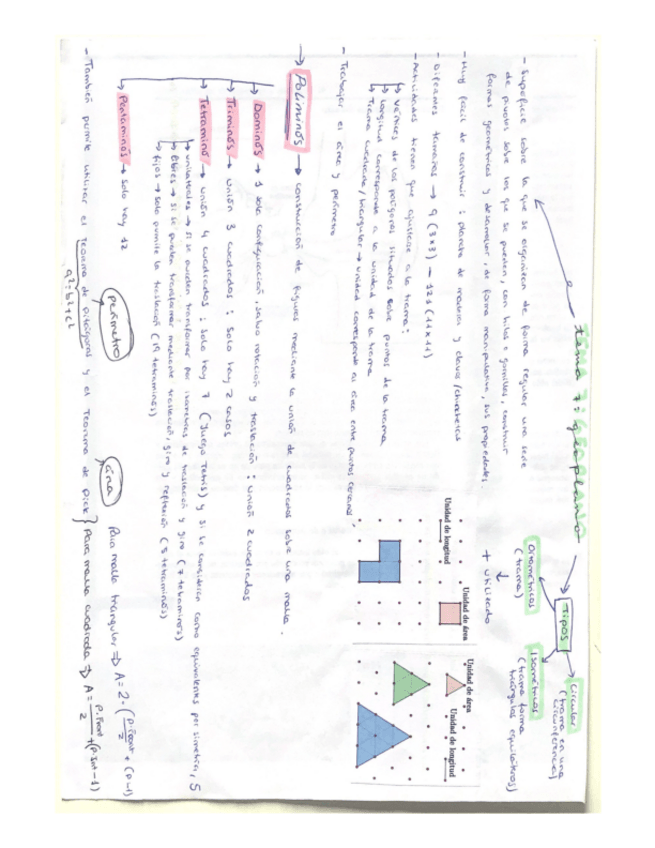 tema 7: geoplano
Tipos
Circular
(trama en una circunferencia)
Ortométricos
(trama)
+ utilizado
Isométricos
(trama forma triángulos equiláteros)
- Superficie sobre la que se organizan de forma regular una serie
de pivotes sobre los que se pueden, con hilos o gomillas, construir
formas geométricas y desarrollar, de forma manipulativa, sus propiedades.
- Muy fácil de construir: plancha de madera y clavos/chinchetas
- Diferentes tamaños → 9 (3x3) - 121 (11x11)
- Actividades tienen que ajustarse a la trama:
↳ vértices de los polígonos situados sobre puntos de la trama
↳ Longitud corresponde a la unidad de la trama
↳ Trama cuadrada/triangular → unidad corresponde al área entre puntos
- Trabajar el área y perímetro
Unidad de longitud
Unidad de área
Unidad de área
Unidad de longitud
→ Poliminós → construcción de figuras mediante la unión de cuadrados sobre una malla.
→ Dominós → 1 sola configuración, salvo rotación y traslación: unión 2 cuadrados
→ Triminós → unión 3 cuadrados: solo hay 2 casos
→ Tetraminó → unión 4 cuadrados: solo hay 7 (juego Tetris) y si se consideran como equivalentes por simetría, 5
↳ unilaterales → si se pueden transformar por isometrías de traslación y giro (7 tetraminós)
↳ libres → si se pueden transformar mediante traslación, giro y reflexión (5 tetraminós)
↳ fijos → solo permite la traslación (19 tetraminós)
→ Pentaminós → solo hay 12
perímetro
área
- También permite utilizar el Teorema de Pitágoras y el Teorema de Pick
a²=b²+c²
Para malla triangular ⇒ A = 2·(P.front/2 + (P-1)
Para malla cuadrada ⇒ A = P.front/2 + (P.Int - 1)